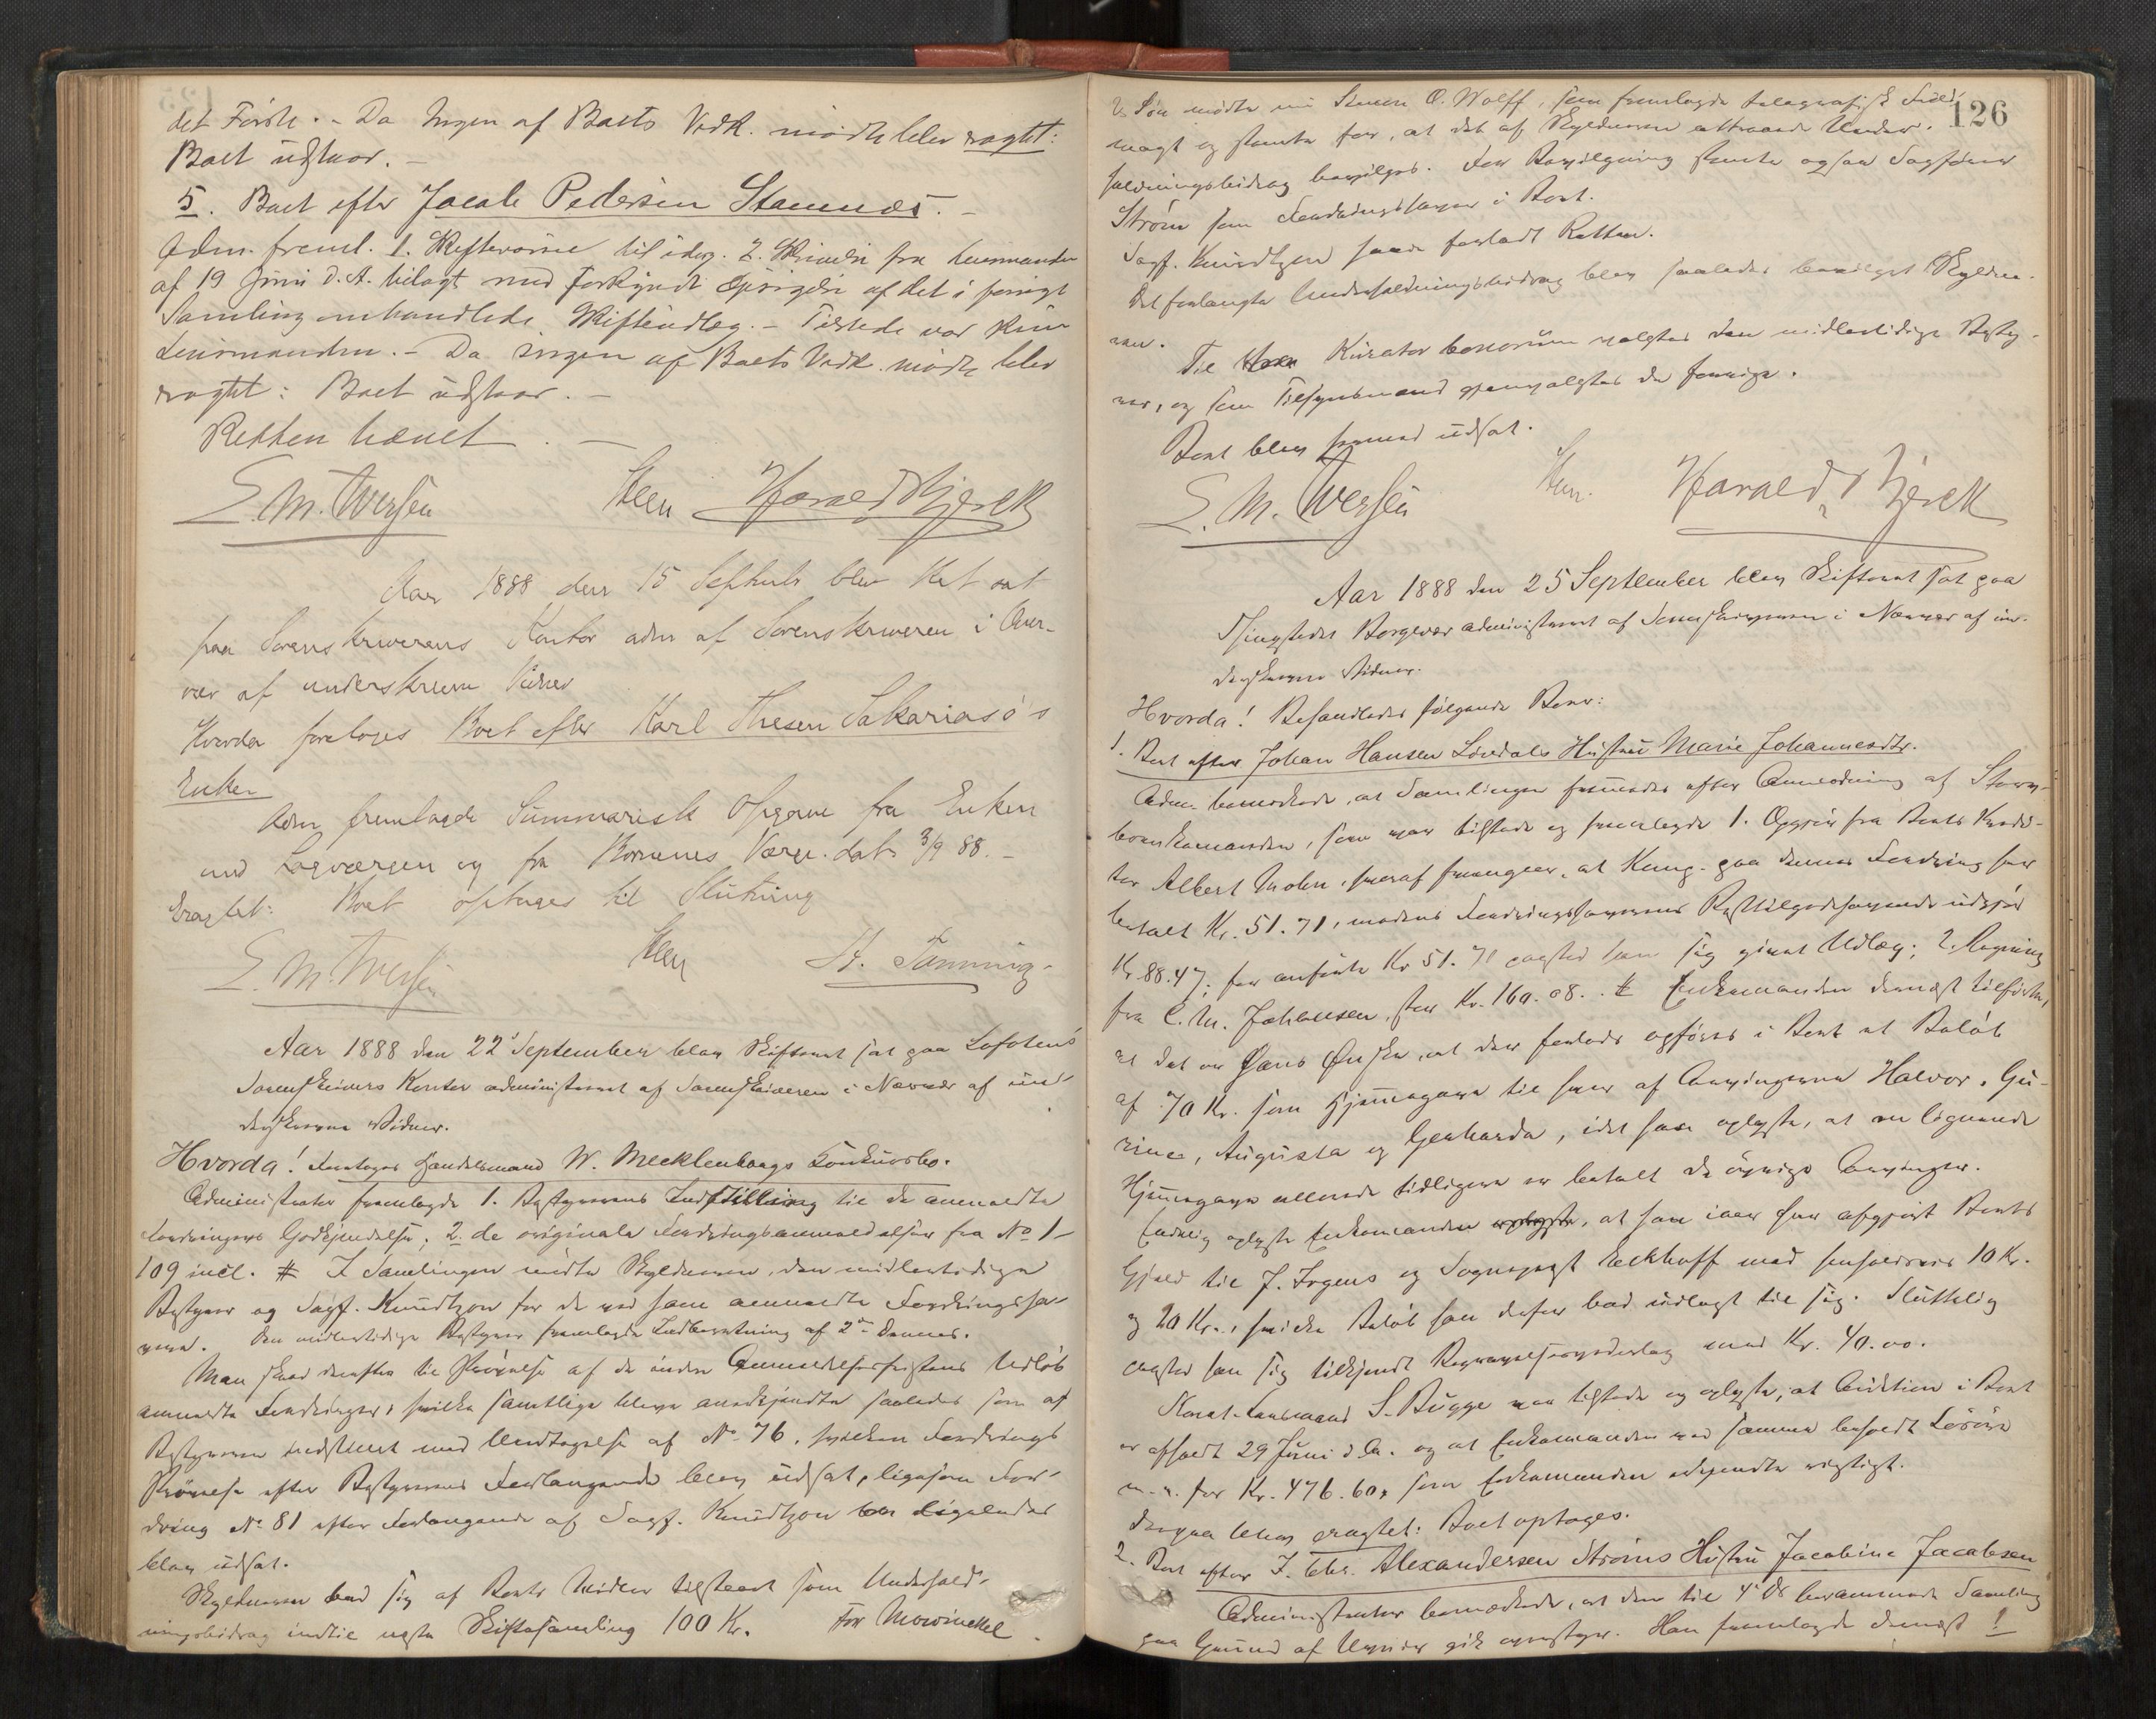 det Första. - Da Ingen af Boets Vedk. mødte blev eragtet:
Boet udstaar. -
5. Boet efter Jacob Pedersen Stamnes. -
Adm. freml. 1. Skiftevarsel til idag. 2. Skrivelse fra Lensmanden
af 19 Juni d. A. bilagt med forkyndt Opsigelse af det i forrige
Samling omhandlede Skifteudlæg. - Tilstede var kun
Lensmanden. - Da ingen af Boets Vedk. mødte blev
eragtet: Boet udstaar. -
Retten hævet. -
E. M. Iversen Steen Harald Bjerck
Aar 1888 den 15 Septemb blev Ret sat
paa Sorenskriverens Kontor adm af Sorenskriveren i Over-
vær af underskrevne Vidner
Hvorda foretoges Boet efter Karl Thesen Sakariasø's
Enke
Adm fremlagde Summarisk Opgave fra Enken
med Lagværgen og fra Børnenes Værge. dat. 3/9 88. -
Eragtet: Boet optages til Slutning
E. M. Iversen Steen St. Tønning
Aar 1888 den 22' September blev Skifteret sat paa Lofotens
Sorenskriveris Kontor administreret af Sorenskriveren i Nærvær af un-
derskrevne Vidner.
Hvorda! Foretoges Handelsmand W. Mecklenborgs Konkursbo.
Administrator fremlagde 1. Bestyrerens Indstilling til de anmeldte
Fordringers Godkjendelse; 2. de originale Fordringsanmeldelser fra No 1-
109 incl. # I Samlingen mødte Skyldneren, den midlertidige
Bestyrer og Sagf. Knudtzon for de ved ham anmeldte Fordringsha-
vere. Den midlertidige Bestyrer fremlagde Indberetning af 2den dennes.
Man skred derefter til Prøvelse af de inden Anmeldelsesfristens Udløb
anmeldte Fordringer, hvilke samtlige bleve anerkjendte saaledes som af
Bestyreren indstillet med Undtagelse af No 76, hvilken Fordrings
Prøvelse efter Bestyrerens Forlangende blev udsat, ligesom For-
dring No 81 efter Forlangende af Sagf. Knudtzon ligeledes
blev udsat.
Skyldneren bad sig af Boets Midler tilstaaet som Underhold-
ningsbidrag indtil næste Skiftesamling 100 Kr. For Mowinckel
126
& Søn mødte nu Simon O. Wolff, som fremlagde telegrafisk Fuld-
magt og stemte for, at det af Skyldneren attraaede Under-
holdningsbidrag bevilges. For Bevilgning stemte ogsaa Sagfører
Strøm som Fordringshaver i Boet.
Sagf. Knudtzon havde forladt Retten.
Det forlangte Underholdningsbidrag blev saaledes bevilget Skyldne-
ren.
Til Kurator bonorum valgtes den midlertidige Besty-
rer, og som Tilsynsmænd gjenvalgtes de forrige.
Boet blev hermed udsat.
E. M. Iversen Steen. Harald Bjerck
Aar 1888 den 25 September blev Skifteret sat paa
Thingstedet Borgevær administreret af Sorenskriveren i Nærvær af un-
derskrevne Vidner.
Hvorda! Behandledes følgende Boer:
1. Boet efter Johan Hansen Lindals Hustru Marie Johannesdtr.
Adm. bemærkede, at Samlingen fremmedes efter Anmodning af
Enkemanden, som var tilstede og fremlagde 1. Opgjør fra Boets Kredi-
tor Albert Mohn, hvoraf fremgaar, at Komp. paa dennes Fordring har
betalt Kr. 51.71, medens Fordringshaverens Resttilgodehavende udgjør
Kr. 88.47; for anførte Kr 51.71 paastod han sig givet Udlæg; 2. Regning
fra C. M. Johansen, stor Kr. 160.08. # Enkemanden dernæst tilførte,
at det er Hans Ønske, at der forlods opføres i Boet et Beløb
af 70 Kr. som Hjemmegave til hver af Arvingerne Halvor, Gu-
rine, Augusta og Gerharda, idet han oplyste, at en lignende
Hjemmegave allerede tidligere er betalt de øvrige Arvinger.
Endelig oplyste Enkemanden, at han iaar har afgjort Boets
Gjæld til J. Irgens og Sognepræst Eckhoff med henholdsvis 10 Kr.
og 20 Kr., hvilke Beløb han derfor bad udlagt til sig. Sluttelig
paastod han sig tilkjendt Begravelsesvederlag med Kr. 40.00.
Konst. Lensmand S. Bugge var tilstede og oplyste, at Auktion i Boet
er afholdt 29 Juni d. A. og at Enkemanden ved samme beholdt Løsøre
m. v. for Kr. 476.60, som Enkemanden vedgjendte rigtigt.
Derpaa blev eragtet: Boet optages.
2. Boet efter J. Chr. Alexandersen Strøms Hustru Jacobine Jacobsen
Administrator bemærkede, at den til 4' ds berammede Samling
paa Grund af Uveir gik overstyr. Han fremlagde dernæst 1